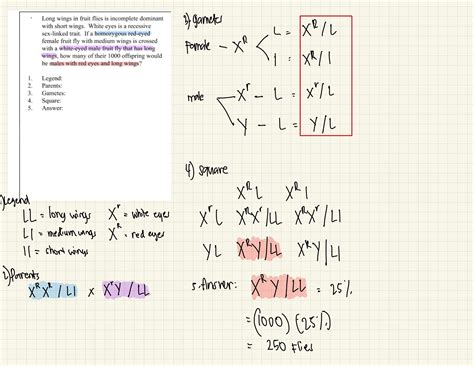 Long wings in fruit flies is incomplete dominant
with short wings. White eyes is a recessive
sex-linked trait. If a homozygous red-eyed
female fruit fly with medium wings is crossed
with a white-eyed male fruit fly that has long
wings, how many of their 1000 offspring would
be males with red eyes and long wings?
1. Legend:
2. Parents:
3. Gametes:
4. Square:
5. Answer:
1) Legend
LL = long wings X^r = white eyes
Ll = medium wings X^R = red eyes
ll = short wings
2) Parents
X^R X^R / Ll x X^r Y / LL
3) gametes
Female - X^R < L = X^R / L
l = X^R / l
male X^r - L = X^r / L
Y - L = Y / L
4) square
X^R L X^R l
X^r L X^R X^r / LL X^R X^r / Ll
YL X^R Y / LL X^R Y / Ll
5 Answer: X^R Y / LL = 25%
= (1000) (25%)
= 250 flies